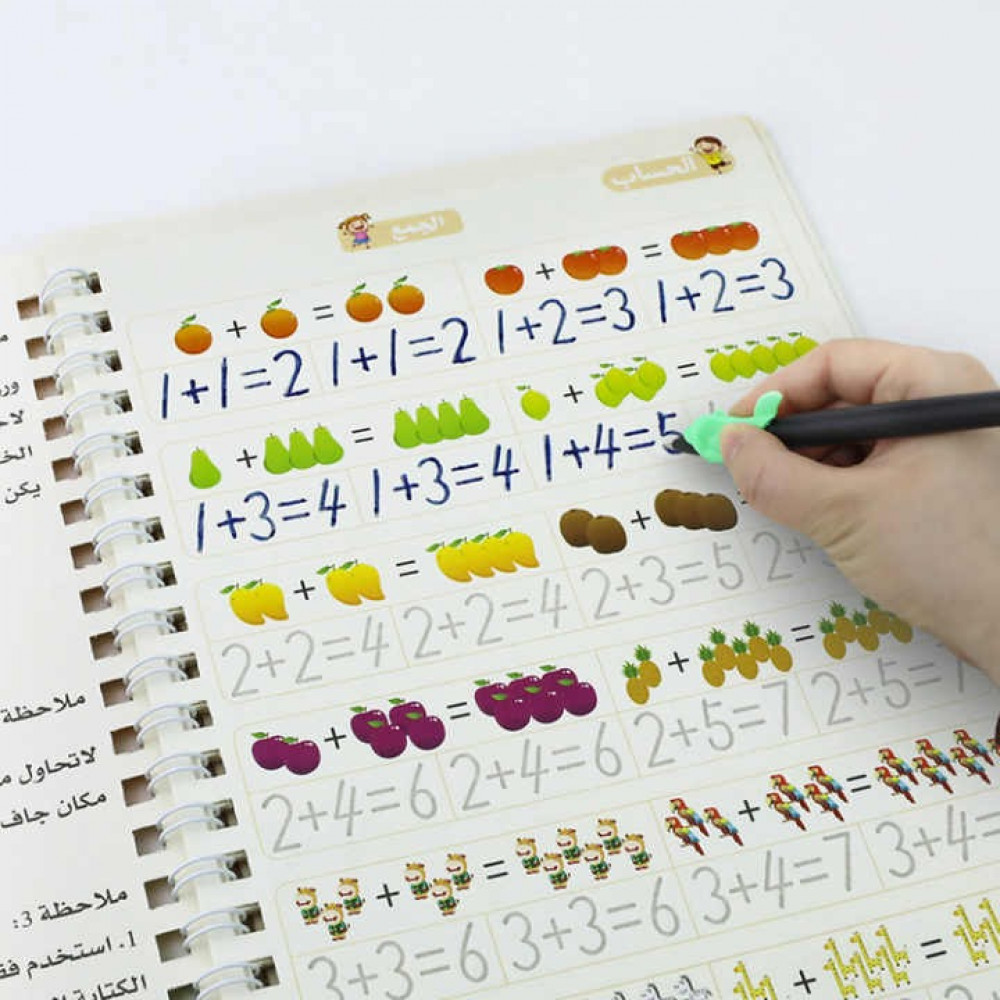 الحساب
الجمع
+ = + =
1+1=2 1+1=2 1+2=3 1+2=3
+ = + =
1+3=4 1+3=4 1+4=5
+ = +
2+2=4 2+2=4 2+3=5 2+
+ = + =
2+4=6 2+4=6 2+5=7 2+5=7
+ = + =
3+3=6 3+3=6 3+4=7 3+4=
+ =
يكن
ملاحظة
لاتحاول
مكان جاف
ملاحظة 3:
1. استخدم
الكتابة